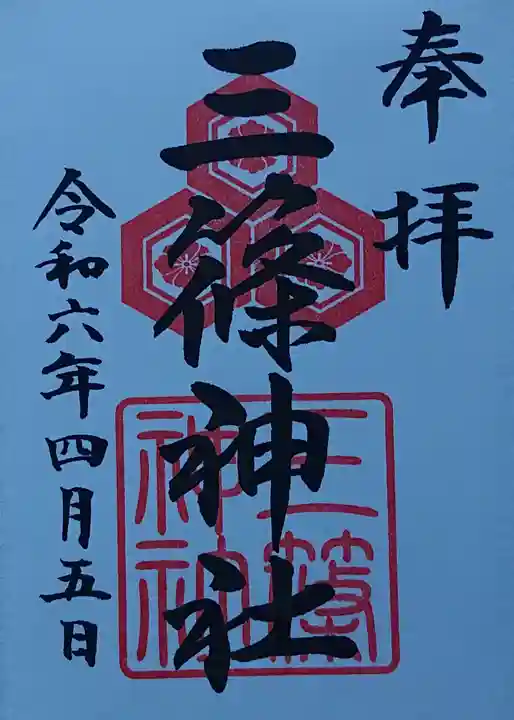 奉拝
三篠神社
三篠
神社
令和六年四月五日